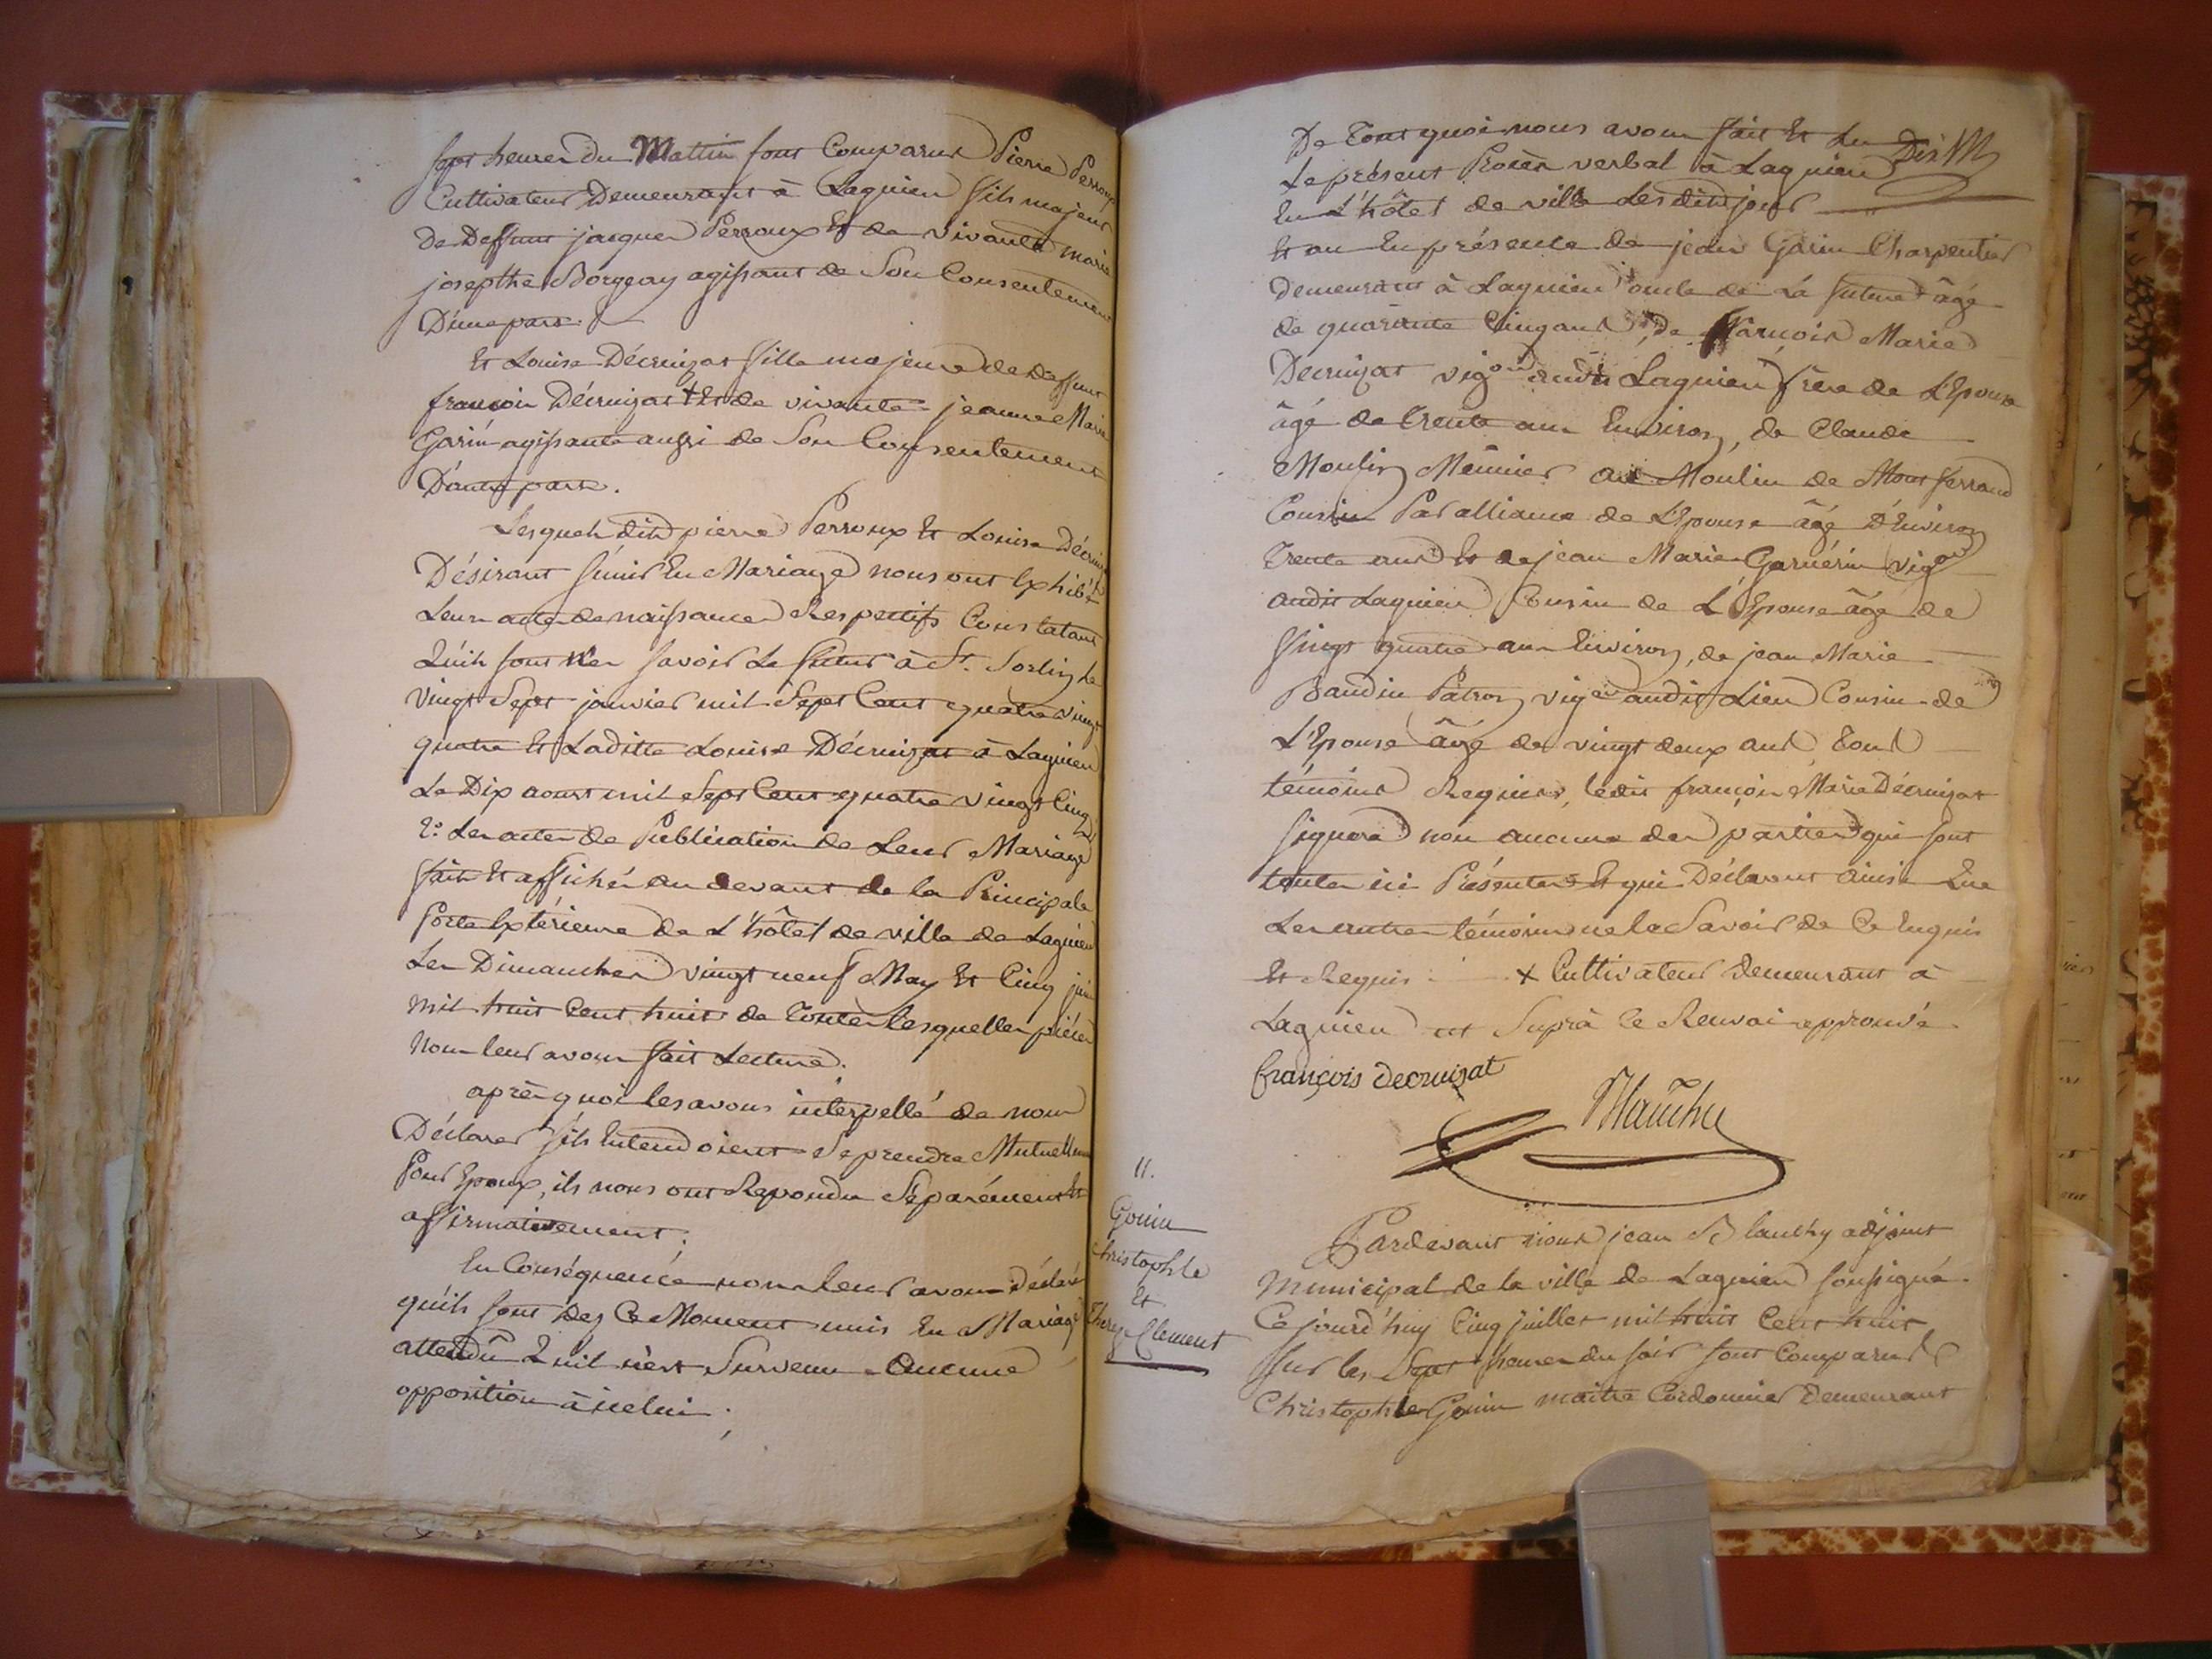 sept heures du Mattin sont Comparus Pierre Perroux
Cultivateur Demeurant à Lagnieu fils majeur
de Deffunt jacques Perroux Et de vivante marie
josepthe Borgeay agissant de Son Consentement
D'une part.
Et Louise Décruizat fille majeure de deffunt
françois Décruizat + Et de vivante jeanne Marie
Garin agissante aussi de Son Consentement
D'autre part.
Lesquels dits pierre Perroux Et Louise Décruizat
Désirant s'unir En Mariage nous ont Exhibé
Leurs actes de naissances Respectifs Constatant
Qu'ils sont nés savoir Le futur à St. Sorlin Le
vingt Sept janvier mil Sept Cent quatre vingt
quatre Et Laditte Louise Décruizat à Lagnieu
Le Dix aoust mil Sept Cent quatre vingt Cinq
2o. Les actes de Publication de Leur Mariage
faits Et affichés au devant de la Principale
Porte Extérieure de L'hôtel de ville de Lagnieu
Les Dimanches vingt neuf May Et Cinq juin
mil huit Cent huit de Toutes lesquelles pièces
Nous leur avons fait Lecture.
après quoi les avons interpellé de nous
Déclarer s'ils Entendoient Se prendre Mutuellement
Pour Epoux, ils nous ont Repondu Séparément Et
affirmativement.
En Conséquence nous leur avons Déclaré
qu'ils sont Des Ce Moment unis En Mariage
attendû Qu'il n'est Survenu Aucune
opposition à icelui.
De Tout quoi nous avons fait Et Lu
Le présent Procès verbal à Lagnieu
En L'hôtel de ville Lesdits jour
Et an En présence de jean Garin Charpentier
Demeurant à Lagnieu oncle de La future âgé
de quarante Cinq ans, de françois Marie
Decruizat vigon audit Lagnieu frère de L'Epouse
âgé de Trente ans Environ, de Claude
Moulin Meûnier au Moulin de Montferrand
Cousin Par alliance de L'Epouse âgé D'Environ
Trente ans Et de jean Marie Garnérin vigon
audit Lagnieu Cousin de L'Epouse âgé de
vingt quatre ans Environ, de jean Marie
Baudin Patron vigon audit Lieu Cousin de
L'Epouse âgé de vingt deux ans, Tous
témoins Requis, ledit françois Marie Décruizat
signera non aucune des parties qui sont
toutes ici Présentes Et qui Déclarent ainsi Que
Les autres témoins ne le Savoir de Ce Enquis
Et Requis. + Cultivateur Demeurant à
Lagnieu ut Suprà le Renvoi approuvé.
françois decruizat
Blanchy
11.
Gouin
christophle
Et
Clement
Pardevant nous jean Blanchy adjoint
Municipal de la ville de Lagnieu soussigné
Ce jourd'huy Cinq juillet mil huit Cent huit
sur les Sept heures du soir sont Comparus
Christophle Gouin maitre Cordonnier Demeurant